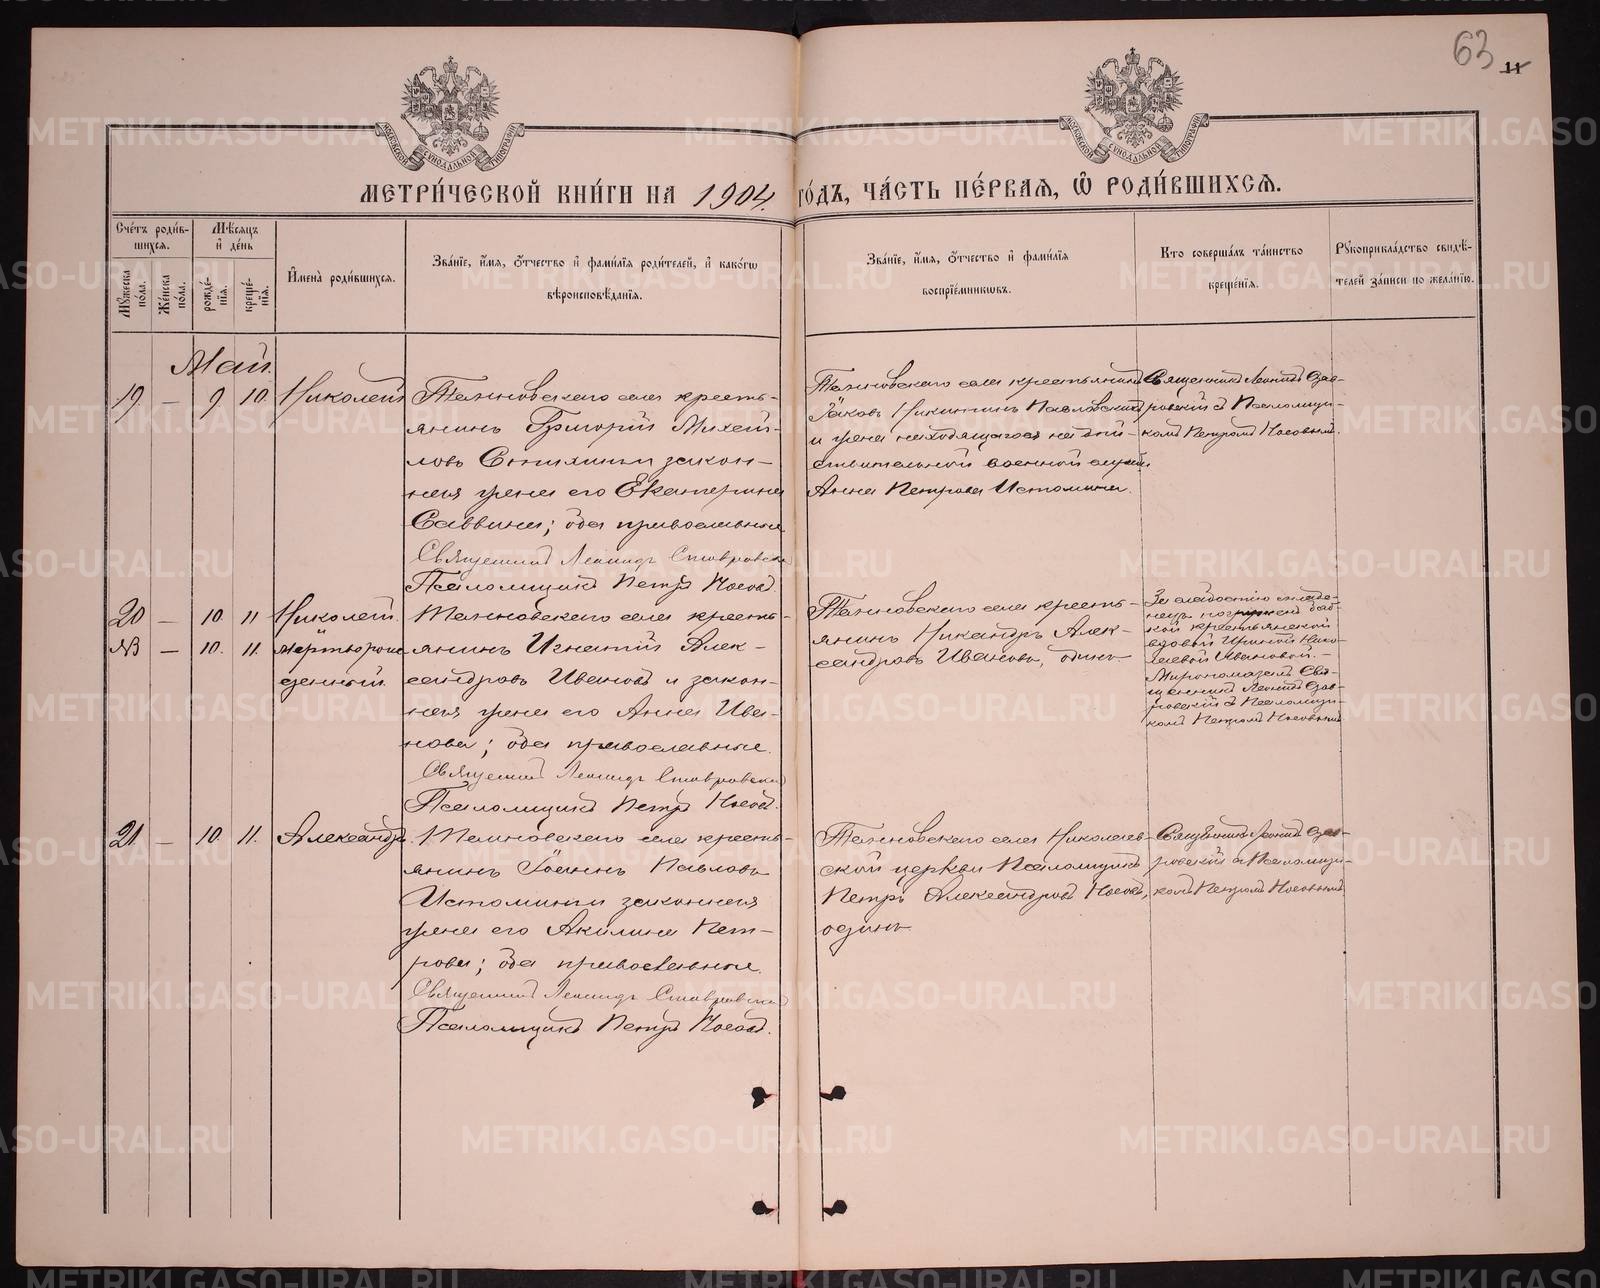 63
11
МОСКОВСКОЙ СѴНОДАЛЬНОЙ ТИПОГРАФІИ
МОСКОВСКОЙ СѴНОДАЛЬНОЙ ТИПОГРАФІИ
МЕТРИ́ЧЕСКОЙ КНИ́ГИ НА 1904. ГО́ДЪ, ЧА́СТЬ ПЕ́РВАѦ, Ѽ РОДИ́ВШИХСѦ.
Сче́тъ роди́в-
шихсѧ.
Мꙋ́жеска по́ла.
Же́нска по́ла.
Мѣ́сѧцъ
и҆ де́нь
рожде́-
нїѧ.
креще́-
нїѧ.
И҆мена̀ роди́вшихсѧ.
Зва́нїе, и҆́мѧ, ѻ҆́тчество и҆ фами́лїѧ роди́телей, и҆ како́гѡ
вѣроисповѣ́данїѧ.
Зва́нїе, и҆́мѧ, ѻ҆́тчество и҆ фами́лїѧ
воспрїе́мникѡвъ.
Кто̀ соверша́лъ та́инство
креще́нїѧ.
Рꙋкоприкла́дство свидѣ́-
телей за́писи по жела́нїю.
Май.
19 — 9 10. Николай
села кресть-
янинъ Григорій Михай-
ловъ и закон-
ная жена его Екатерина
Саввина; оба православные
Священникъ Леонидъ Ставровскій
Псаломщикъ Петръ Носовъ.
села крестьянинъ
Іаковъ Никитинъ Павловскихъ
и жена находящагося на дѣй-
ствительной военной службѣ
Анна Петрова Истомина.
Священникъ Леонидъ Став-
ровскій съ Псаломщи-
комъ Петромъ Носовымъ.
20 — 10. 11 Николай.
NB — 10. 11. мёртворож-
денный.
села кресть-
янинъ Игнатій Алек-
сандровъ Ивановъ и закон-
ная жена его Анна Ива-
нова; оба православные.
Священникъ Леонидъ Ставровскій
Псаломщикъ Петръ Носовъ.
села кресть-
янинъ Никандръ Алек-
сандровъ Ивановъ, одинъ.
За слабостію младе-
нецъ погруженъ баб-
кой крестьянской
вдовой Ириной Нико-
лаевой Ивановой. —
Мѵропомазалъ Свя-
щенникъ Леонидъ Став-
ровскій съ Псаломщи-
комъ Петромъ Носовымъ
21 — 10. 11. Александръ.
села кресть-
янинъ Іоаннъ Павловъ
Истоминъ и законная
жена его Акилина Пет-
рова; оба православные.
Священникъ Леонидъ Ставровскій
Псаломщикъ Петръ Носовъ.
села Николаев-
ской церкви Псаломщикъ
Петръ Александровъ Носовъ,
одинъ
Священникъ Леонидъ Став-
ровскій съ Псаломщи-
комъ Петромъ Носовымъ
METRIKI.GASO-URAL.RU